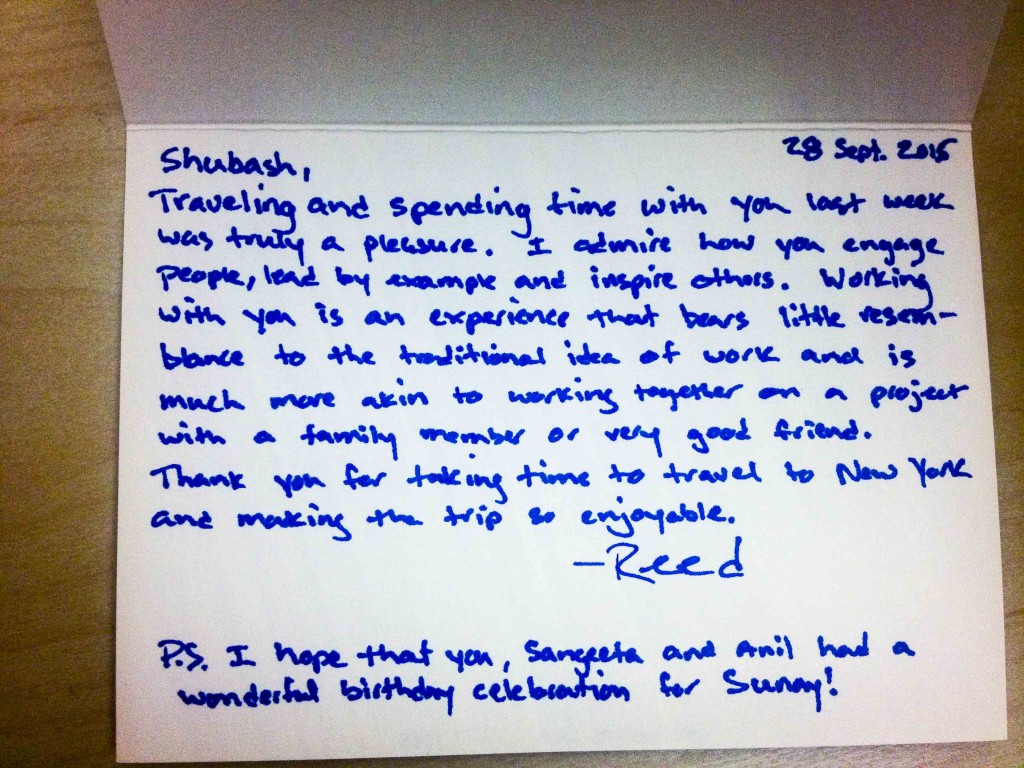 28 Sept. 2015
Shubash,
Traveling and spending time with you last week
was truly a pleasure. I admire how you engage
people, lead by example and inspire others. Working
with you is an experience that bears little resem-
blance to the traditional idea of work and is
much more akin to working together on a project
with a family member or very good friend.
Thank you for taking time to travel to New York
and making the trip so enjoyable.
-Reed
P.S. I hope that you, Sangeeta and Anil had a
wonderful birthday celebration for Sunay!